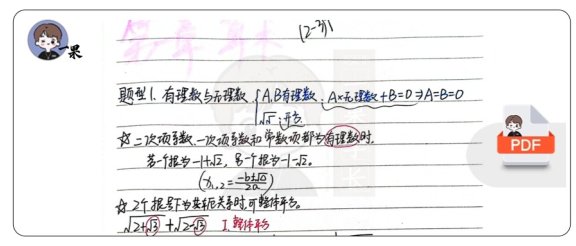 一果
(2-3)1
题型1. 有理数与无理数 { A,B有理数. A×无理数+B=0⇒A=B=0
√5:开方
☆ 二次项系数.一次项系数和常数项都为有理数时.
若一个根为-1+√2, 另一个根为-1-√2。
(x₁,₂=(-b±√Δ)/2a)
☆ 2个根号下为共轭关系时,可整体平方。
√(2+√3) + √(2-√3) I.整体平方
PDF